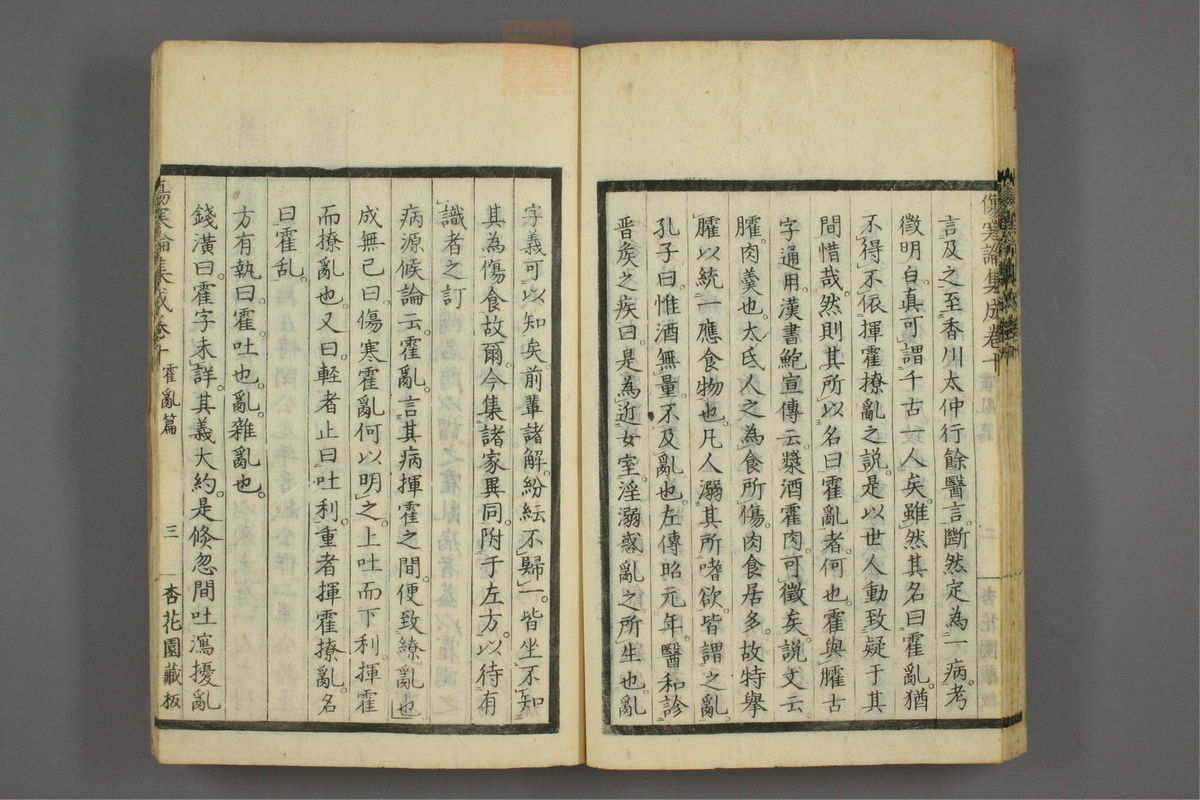 言及之至香川太仲行餘醫言斷然定為一病考
徵明白真可謂千古一人矣雖然其名曰霍亂猶
不得不依揮霍撩亂之說是以世人動致疑于其
間惜哉然則其所以名曰霍亂者何也霍與臛古
字通用漢書鮑宣傳云漿酒霍肉可徵矣說文云
臛肉羹也大氐人之為食所傷肉食居多故特舉
臛以統一應食物也凡人溺其所嗜欲皆謂之亂
孔子曰惟酒無量不及亂也左傳昭元年醫和診
晋矦之疾曰是為近女室淫溺惑亂之所生也亂
傷寒論集成卷十
字義可以知矣前輩諸解紛紜不歸一皆坐不知
其為傷食故爾今集諸家異同附于左方以待有
識者之訂
病源候論云霍亂言其病揮霍之間便致繚亂也
成無己曰傷寒霍亂何以明之上吐而下利揮霍
而撩亂也又曰輕者止曰吐利重者揮霍撩亂名
曰霍乱
方有執曰霍吐也亂雜亂也
錢潢曰霍字未詳其義大約是倐忽間吐瀉擾亂
傷寒論集成卷十 霍亂篇 三 杏花園藏板